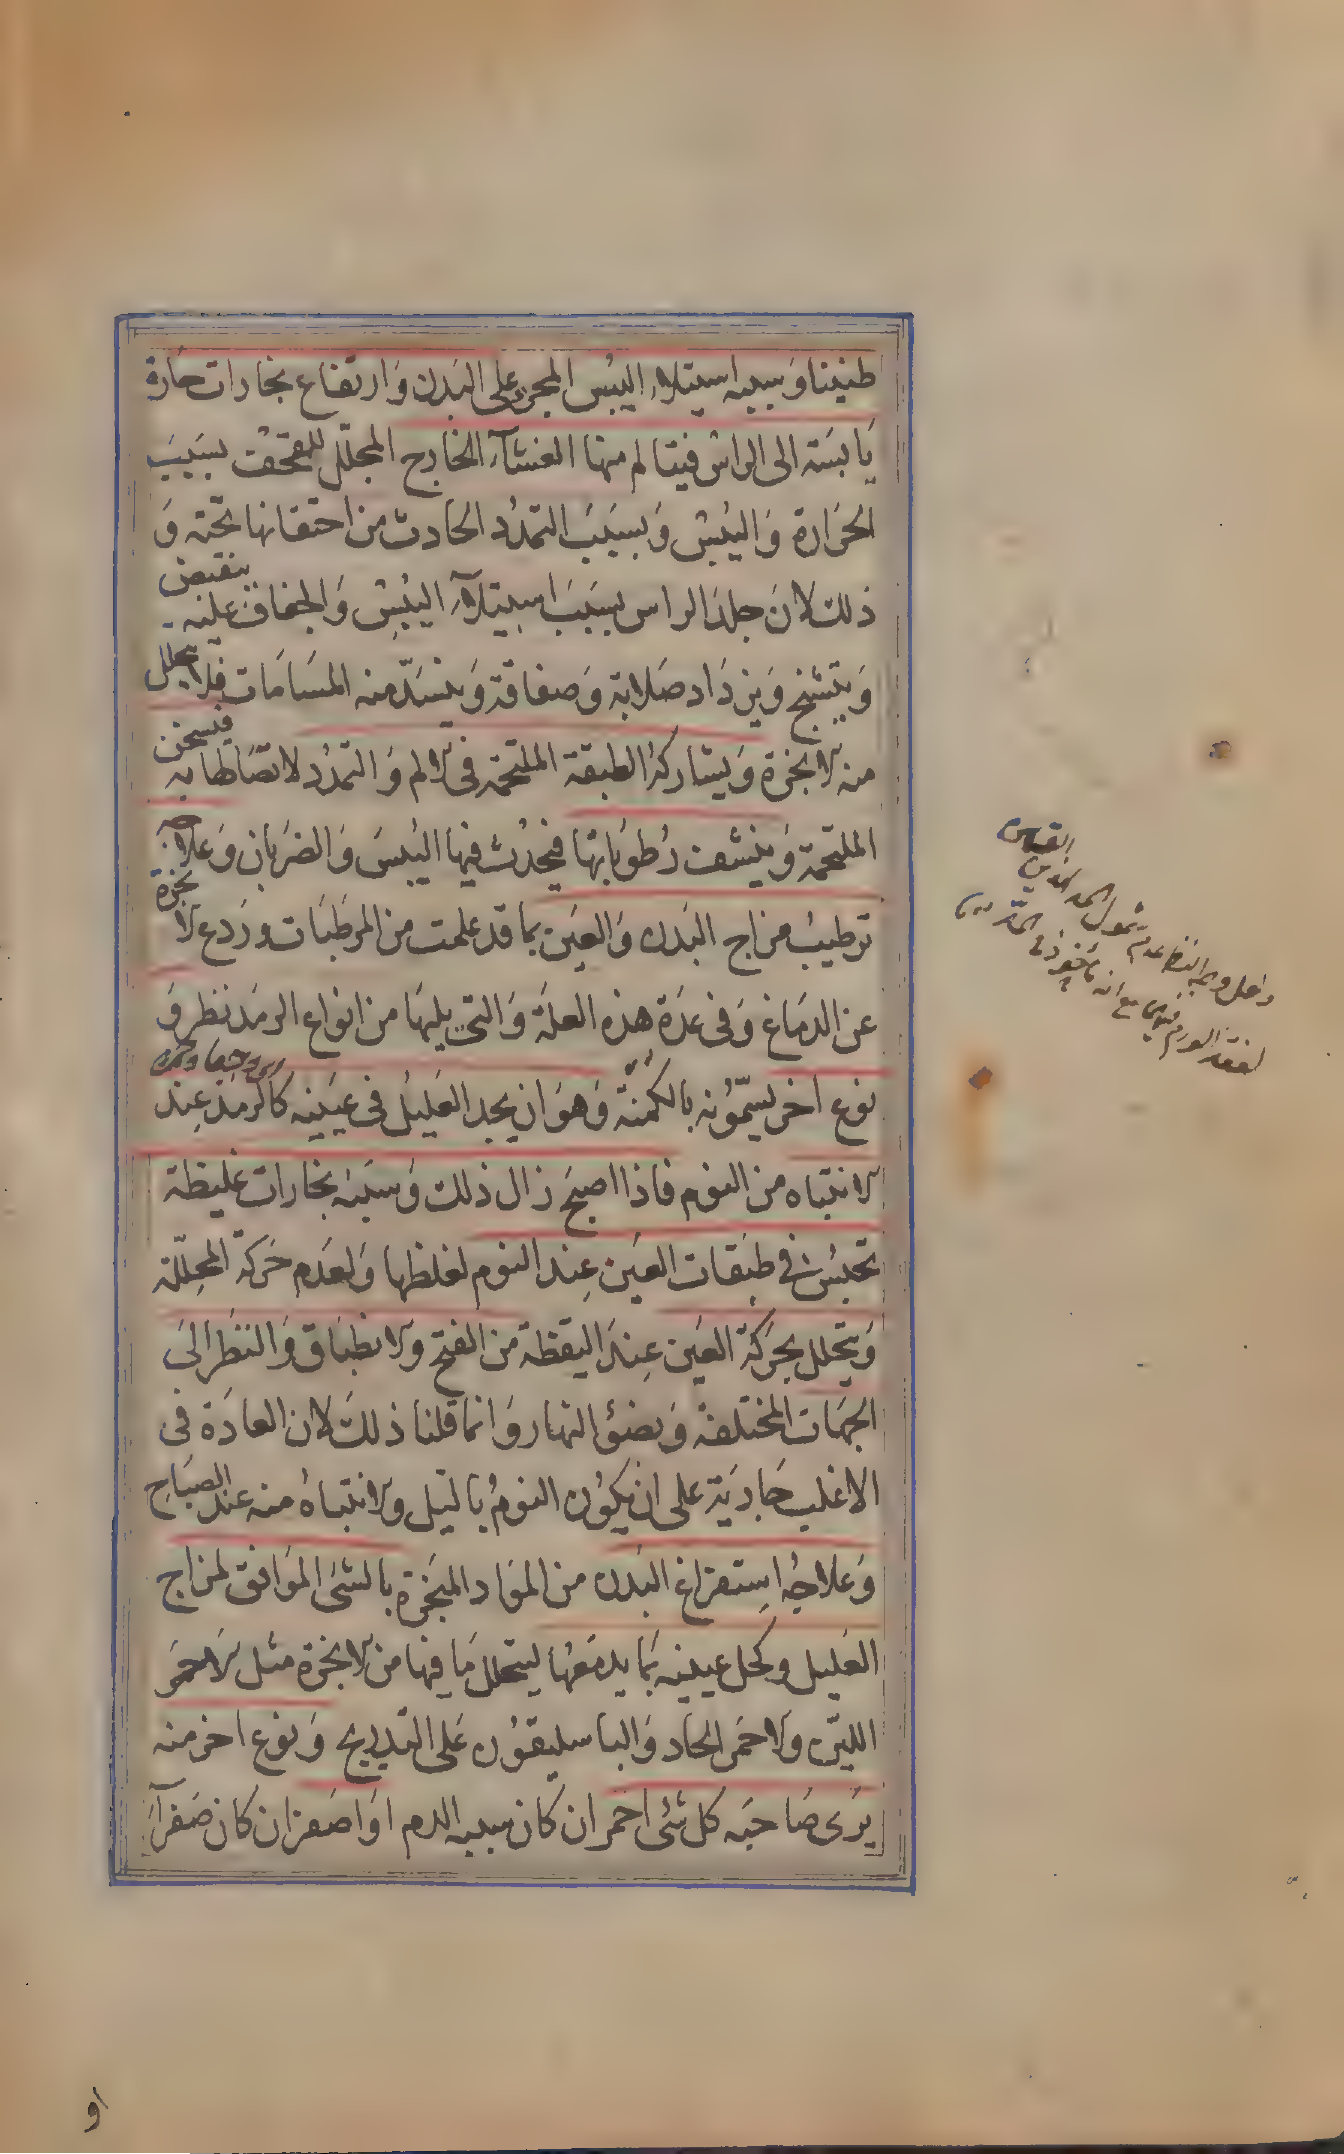 طنينا وسببه استيلاء اليبس المجرد على البدن وارتفاع بخارات حارة
يابسة الى الراس فيتالم منها الغشآء الخارج المجلل للقحف بسبب
الحرارة واليبس وبسبب التمدد الحادث من احتقانها تحته و
ذلك لان جلد الراس بسبب استيلآء اليبس والجفاف عليه ينقبض
ويتشنج ويزداد صلابة وصفاقة وينسد منه المسامات فلا يتحلل
منه الابخرة ويشاركه الطبقة الملتحمة فى الالم والتمدد لاتصالها به فيسخن
الملتحمة وينشف رطوباتها فيحدث فيها اليبس والضربان وعلاجه
ترطيب مزاج البدن والعين بما قد علمت من المرطبات وردع الابخرة
عن الدماغ وفى عدة هذه العلة والتى يليها من انواع الرمد نظر و
نوع اخر يسمونه بالكمنة وهو ان يجد العليل فى عينيه كالرمد عند
الانتباه من النوم فاذا اصبح زال ذلك وسببه بخارات غليظة
تحبس فى طبقات العين عند النوم لغلظها ولعدم حركة المحللة
ويتحلل بحركة العين عند اليقظة من الفتح والانطباق والنظر الى
الجهات المختلفة وبضئ النهار وانما قلنا ذلك لان العادة فى
الاغلب جارية على ان يكون النوم بالليل والانتباه منه عند الصباح
وعلاجه استفراغ البدن من المواد المبخرة بالشئ الموافق لمزاج
العليل وكحل عينيه بما يدمعها ليتحلل ما فيها من الابخرة مثل الاحمر
اللين والاحمر الحاد والباسليقون على التدريج ونوع اخر منه
يرى صاحبه كل شئ احمر ان كان سببه الدم او اصفر ان كان صفرآء
او